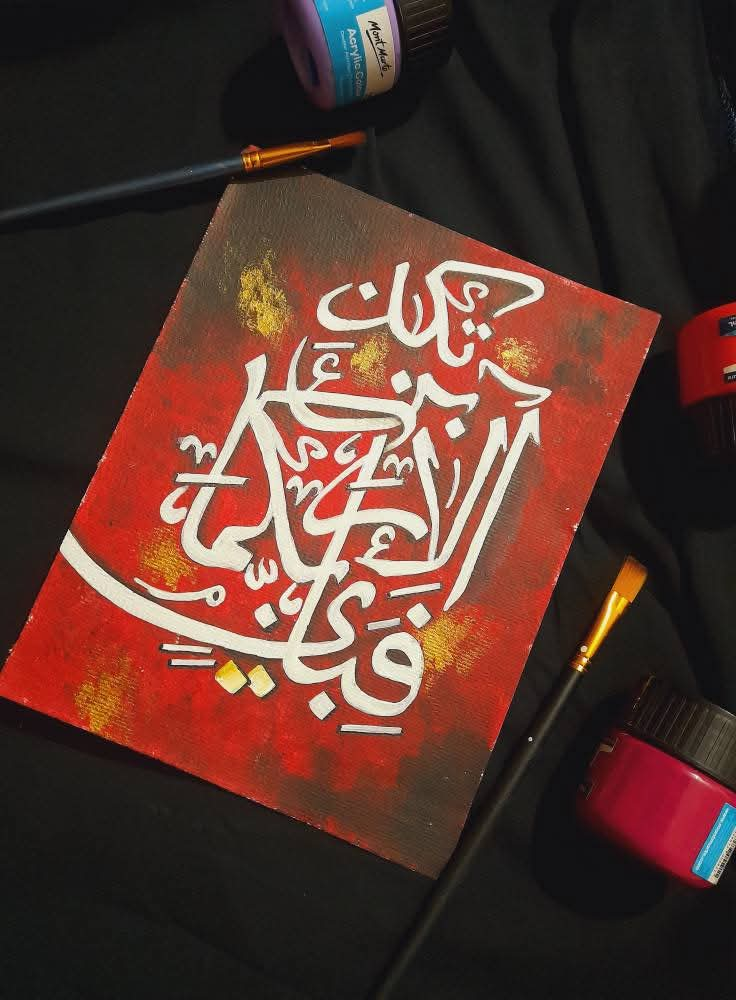 Mont Marte
Acrylic Colour
فَبِأَيِّ
آلَاءِ
رَبِّكُمَا
تُكَذِّبَانِ